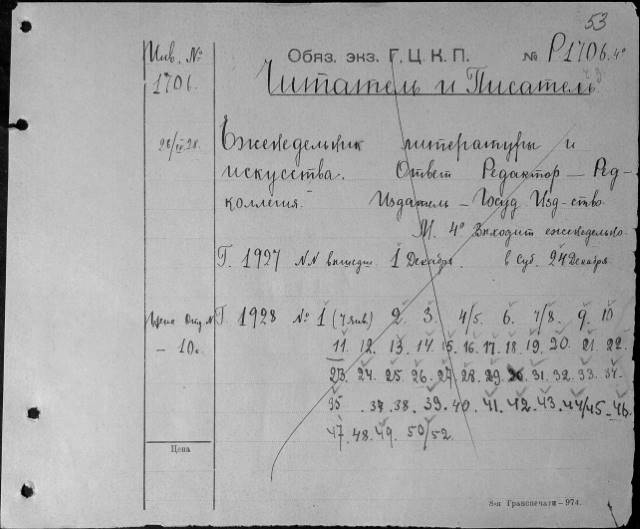 53
Инв. №
1706.
Обяз. экз. Г. Ц. К. П. № Р1706. 4°
Читатель и Писатель
Еженедельник литературы и
искусства. Ответ Редактор — Ред-
коллегия. Издатель — Госуд Изд-ство
М. 4° Выходит еженедельно
Г. 1927 NN вышедш. 1 Декабря. в Суб. 24 Декабря
Цена Отд. N
– 10к
Г. 1928 № 1 (7 янв) 2. 3. 4/5. 6. 7/8. 9. 10
11. 12. 13. 14. 15. 16. 17. 18. 19. 20. 21. 22.
23. 24. 25. 26. 27. 28. 29. 30. 31. 32. 33. 34.
35. 37. 38. 39. 40. 41. 42. 43. 44/45. 46.
47. 48. 49. 50/52
Цена
8-я Гранспечати—974.